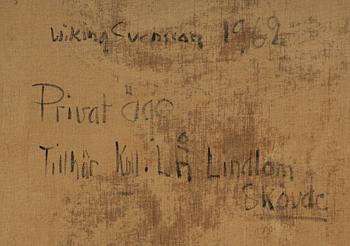 Wiking Svensson 1962
Privat ägo
Tillhör Kol. Lindlom
Skövde